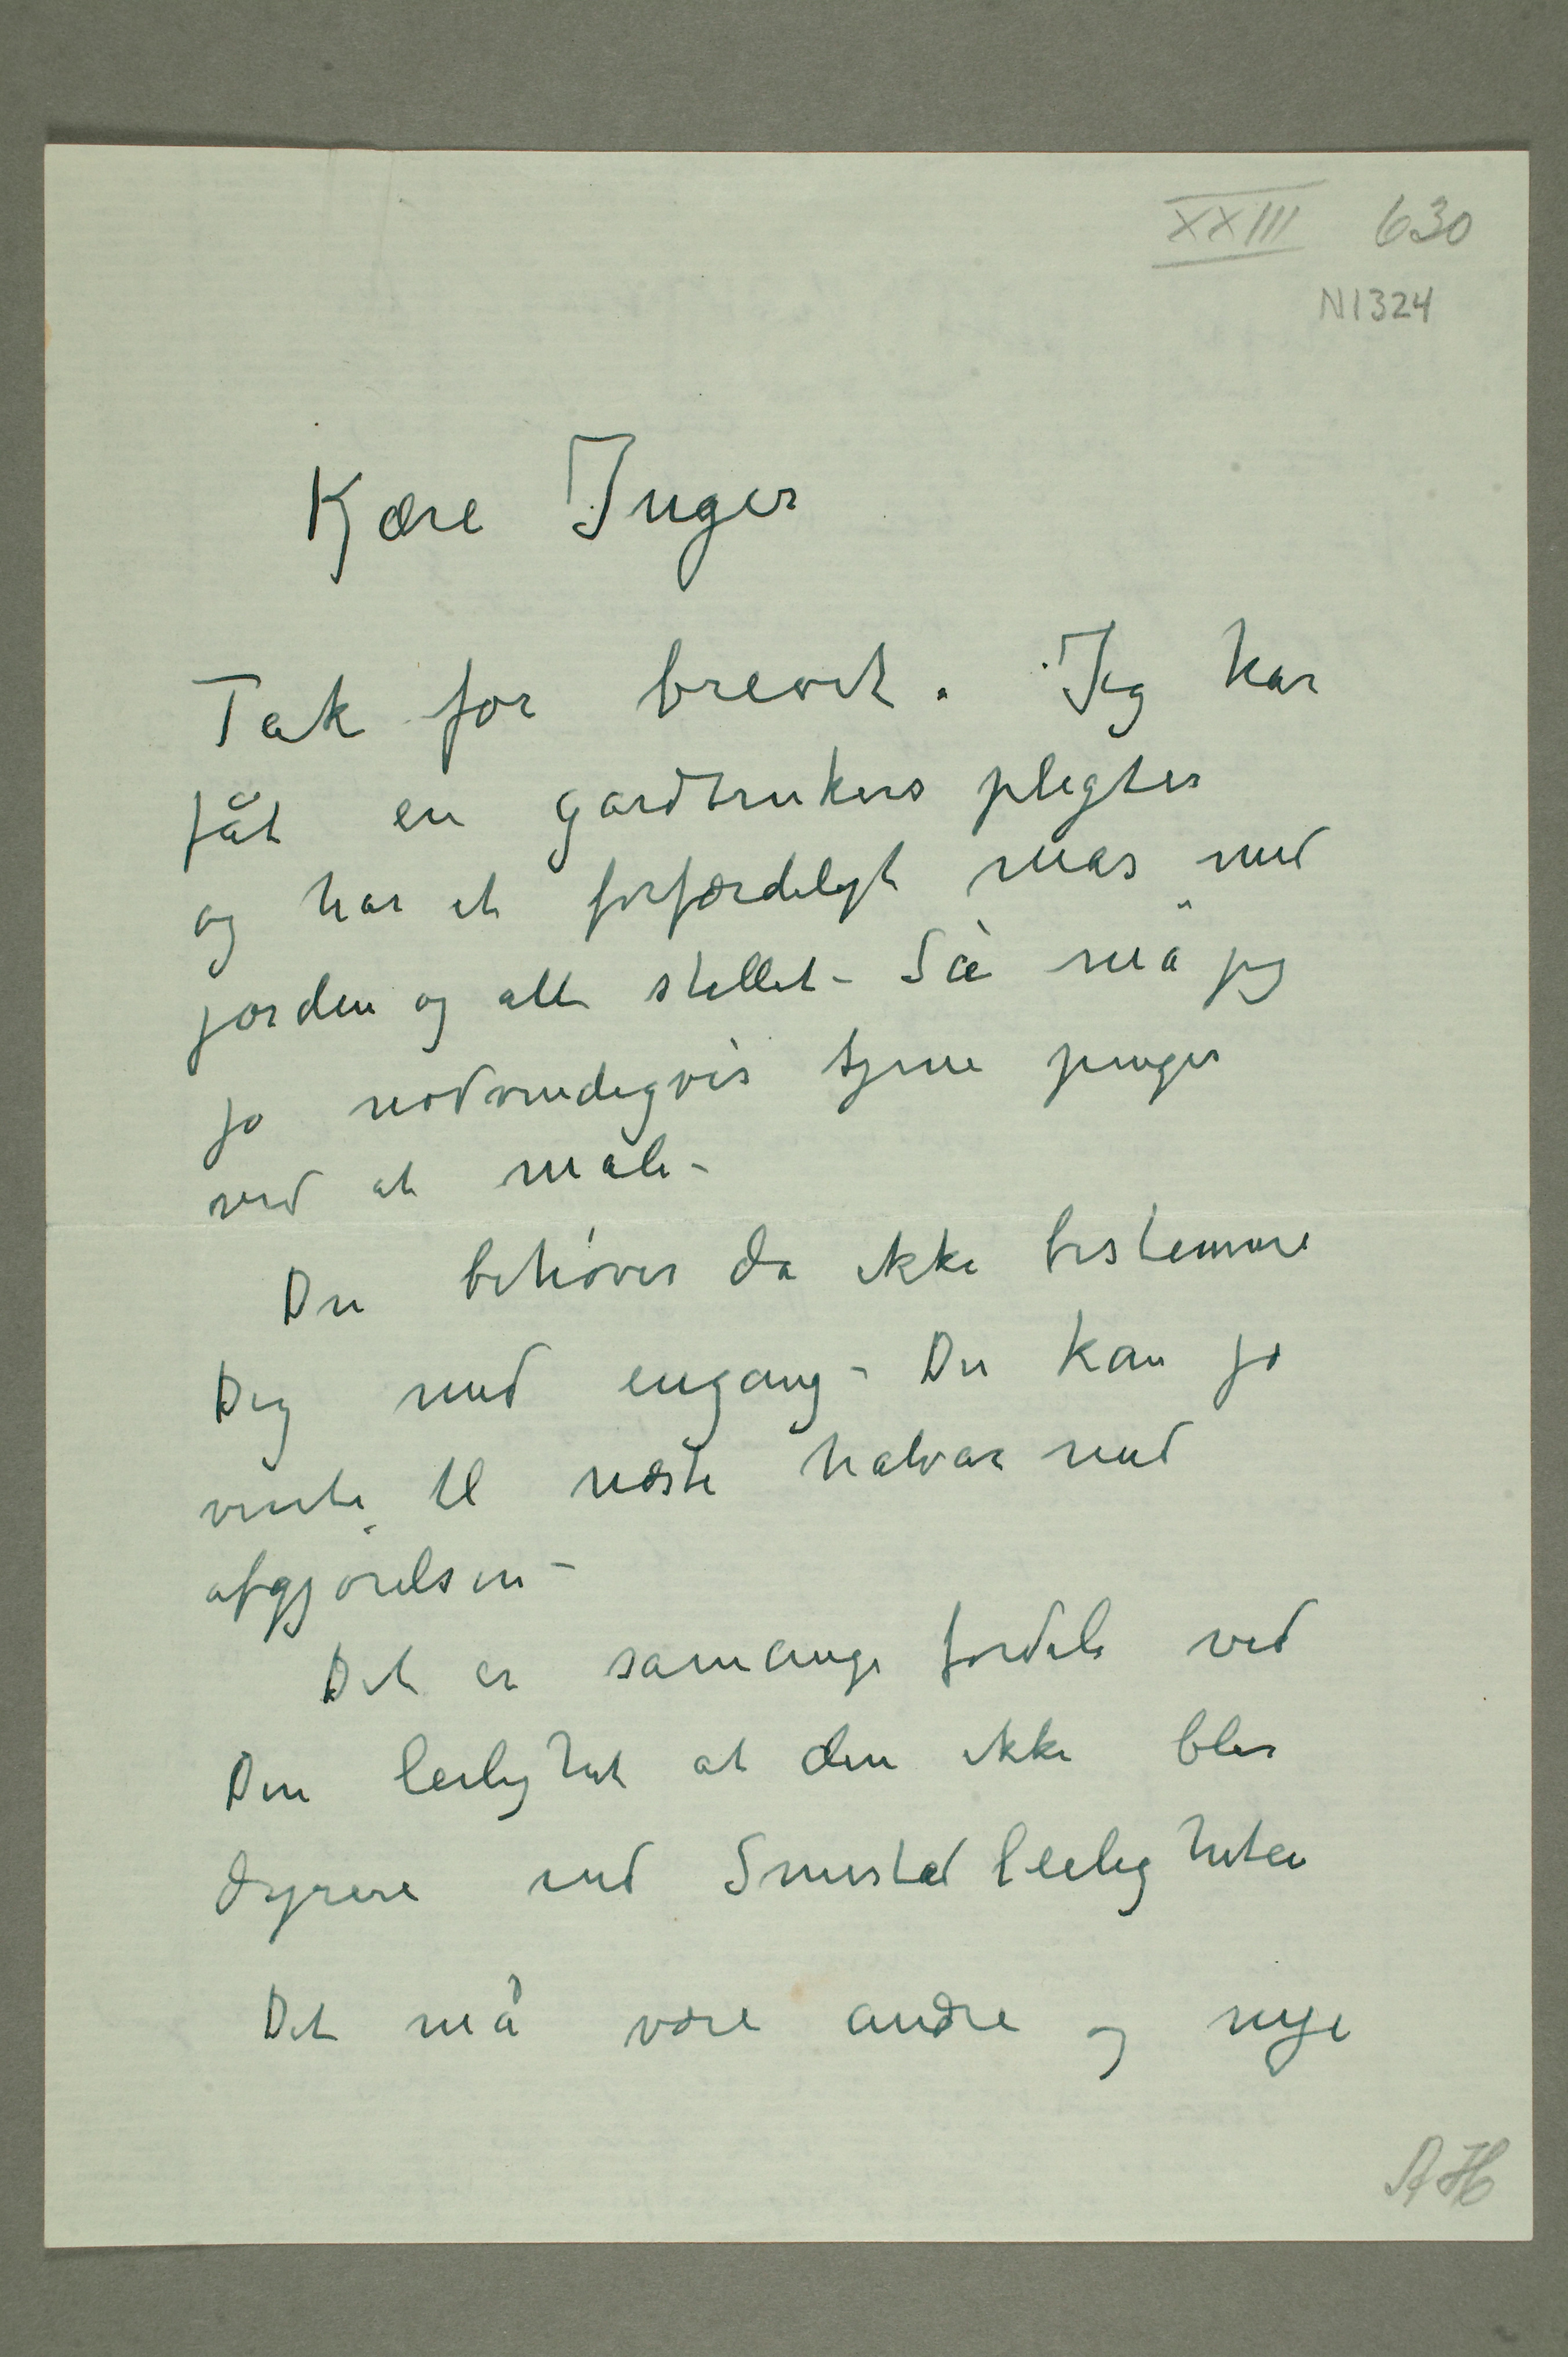 XXIII 630
N1324
Kjære Inger
Tak for brevet. Jeg har
fåt en gardbrukers plegter
og har et forfærdeligt mas med
jorden og alt stellet – Så må jeg
jo nødvendigvis tjene penger
ved at male –
Du behøver da ikke bestemme
Dig med engang – Du kan jo
vente til næste halvår med
afgjørelsen –
Det er samange fordele ved
Din leilighet at den ikke blir
dyrere end Smestadleiligheten
Det må være andre og nye
AH